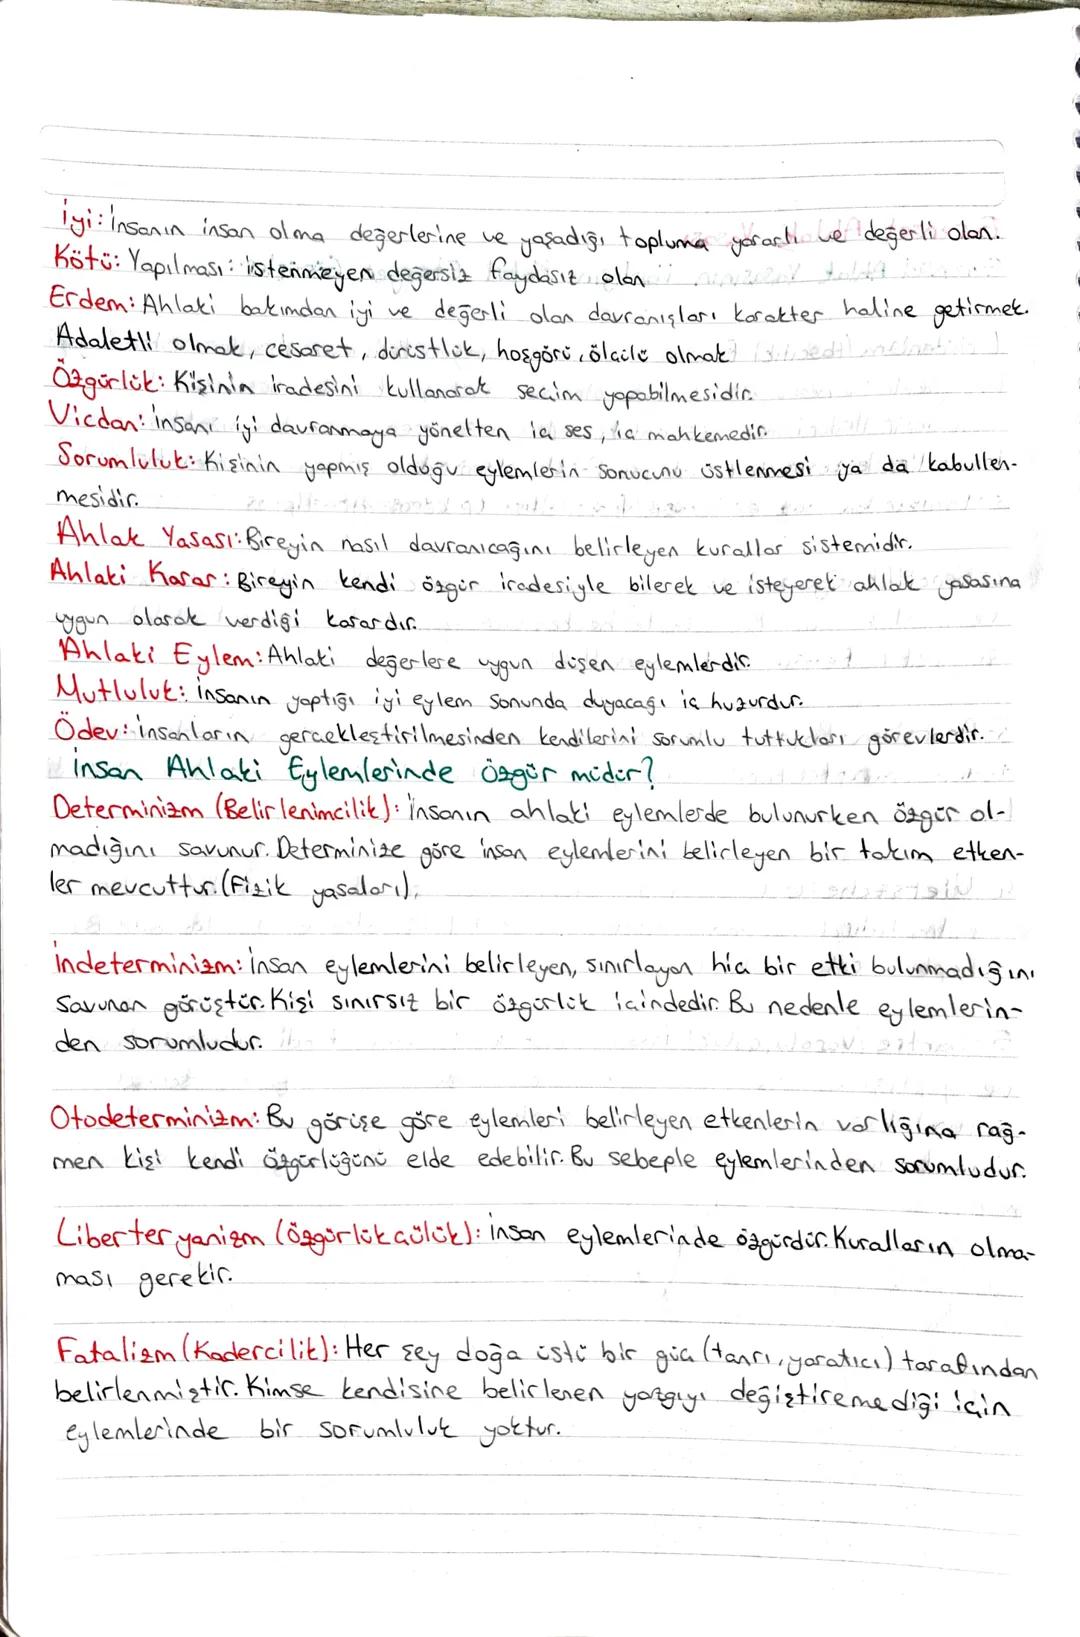 İyi: İnsanın insan olma değerlerine ve yaşadığı topluma yararlı ve değerli olan.
Kötü: Yapılması istenmeyen değersiz faydasız olan
Erdem: Ahlaki bakımdan iyi ve değerli olan davranışları karakter haline getirmek.
Adaletli olmak, cesaret, dürüstlük, hoşgörü, ölçülü olmak
Özgürlük: Kişinin iradesini kullanarak seçim yapabilmesidir.
Vicdan: İnsanı iyi davranmaya yönelten iç ses, iç mahkemedir.
Sorumluluk: Kişinin yapmış olduğu eylemlerin sonucunu üstlenmesi ya da kabullen-
mesidir.
Ahlak Yasası: Bireyin nasıl davranıcağını belirleyen kurallar sistemidir.
Ahlaki Karar: Bireyin kendi özgür iradesiyle bilerek ve isteyerek ahlak yasasına
uygun olarak verdiği karardır.
Ahlaki Eylem: Ahlaki değerlere uygun düşen eylemlerdir.
Mutluluk: İnsanın yaptığı iyi eylem sonunda duyacağı iç huzurdur.
Ödev: İnsanların gerçekleştirilmesinden kendilerini sorumlu tuttukları görevlerdir.
İnsan Ahlaki Eylemlerinde özgür müdür?
Determinizm (Belirlenimcilik): İnsanın ahlaki eylemlerde bulunurken özgür ol-
madığını savunur. Determinize göre insan eylemlerini belirleyen bir takım etken-
ler mevcuttur. (Fizik yasaları).
İndeterminizm: İnsan eylemlerini belirleyen, sınırlayan hiç bir etki bulunmadığını
savunan görüştür. Kişi sınırsız bir özgürlük içindedir. Bu nedenle eylemlerin-
den sorumludur.
Otodeterminizm: Bu görüşe göre eylemleri belirleyen etkenlerin varlığına rağ-
men kişi kendi özgürlüğünü elde edebilir. Bu sebeple eylemlerinden sorumludur.
Liberteryanizm (Özgürlükçülük): İnsan eylemlerinde özgürdür. Kuralların olma-
ması gerekir.
Fatalizm (Kadercilik): Her şey doğa üstü bir güç (tanrı, yaratıcı) tarafından
belirlenmiştir. Kimse kendisine belirlenen yazgıyı değiştiremediği için
eylemlerinde bir sorumluluk yoktur.